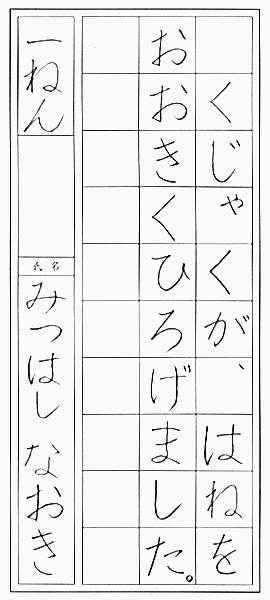 くじゃくが、はねを
おおきくひろげました。
一ねん
氏名
みつはし なおき